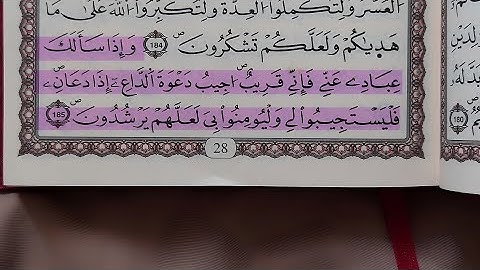 اَلْعُسْرَ وَلِتُكْمِلُواْ اُلْعِدَّةَ وَلِتُكَبِّرُواْ اُللَّهَ عَلَىٰ مَا
هَدٜىٰكُمْ وَلَعَلَّكُمْ تَشْكُرُونَۖ 184 وَإِذَا سَأَلَكَ
عِبَادِے عَنِّے فَإِنِّے قَرِيبٌۖ اجِيبُ دَعْوَةَ اَلدَّاعِۦٓ إِذَا دَعَانِۦۖ
فَلْيَسْتَجِيبُواْ لِے وَلْيُومِنُواْ بِيَ لَعَلَّهُمْ يَرْشُدُونَۖ 185
28
180